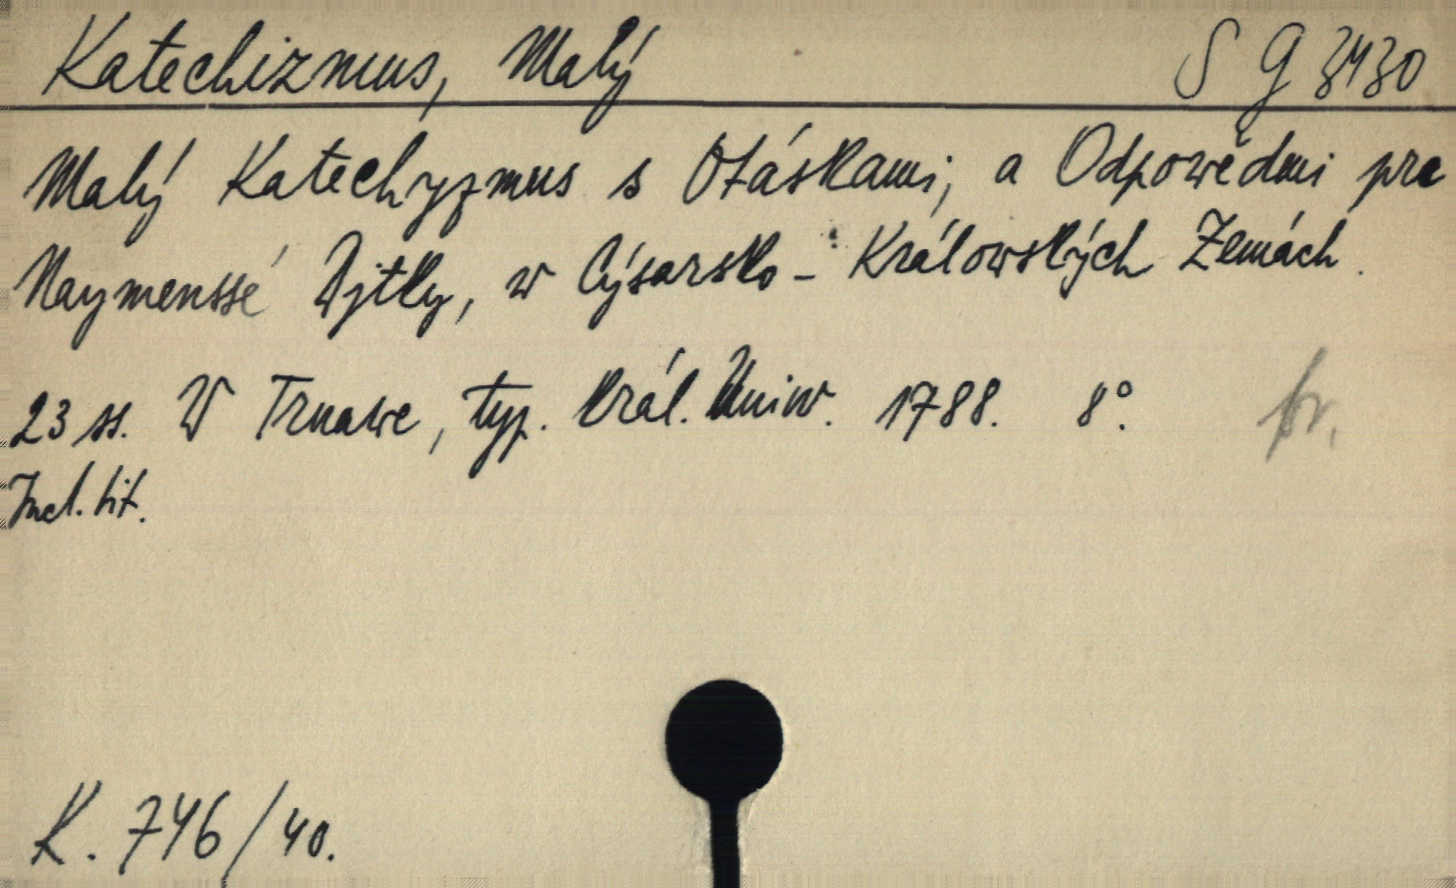 Katechizmus, Malý S G 3430
Malý Katechyzmus s Otáskami, a Odpowědmi pre
Naymenssé Djtky, w Cýsarsko - Králowských Zemách.
23 ss. W Trnawe, typ. Král. Uniw. 1788. 8°. br.
Incl. tit.
K. 746/40.